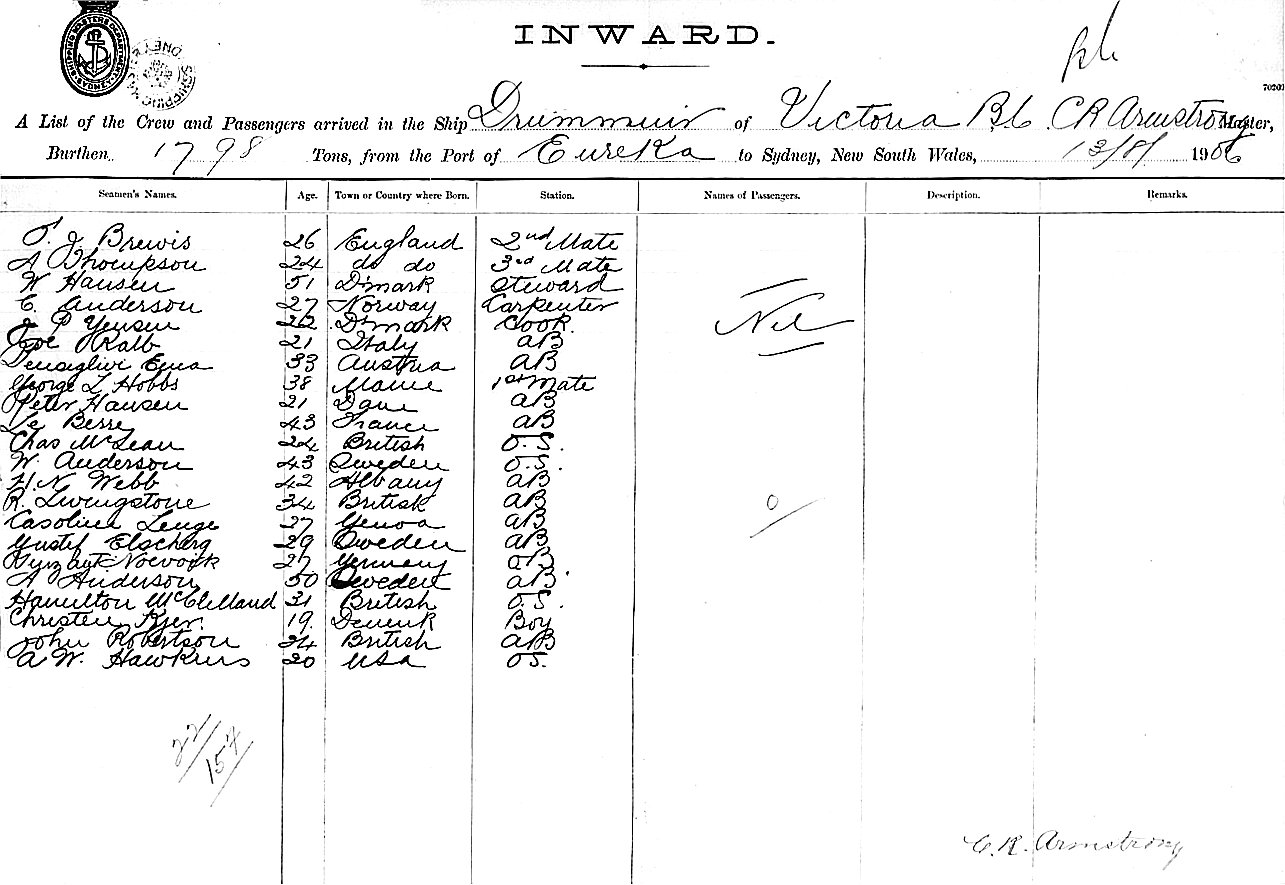 INWARD.
SHIPPING MASTERS DEPARTMENT SYDNEY
70202
A List of the Crew and Passengers arrived in the Ship Drummuir of Victoria B.C. C R Armstrong Master,
Burthen 1798 Tons, from the Port of Eureka to Sydney, New South Wales, 13/8/ 1906
Seamen's Names. Age. Town or Country where Born. Station. Names of Passengers. Description. Remarks.
T. J Brewis 26 England 2nd Mate
A Thompson 24 do do 3rd Mate
W Hansen 51 D'mark Steward
C. Anderson 27 Norway Carpenter
J P Yensen D'mark Cook.
Nil
Joe Ralb 21 Italy AB
33 Austria AB
George L Hobbs 38 Maine 1st Mate
Peter Hansen 21 Dane AB
Le Berre 43 France AB
Chas McLean 24 British O.S.
W. Anderson 43 Sweden O.S.
H.N. Webb 42 Albany AB
R. Livingstone 34 British AB
27 Genoa AB
Gustef 29 Sweden AB
27 Germany AB
A Anderson 50 Sweden AB.
Hamilton McClelland 31 British O.S.
Christen Kjer. 19. Boy
John Robertson 34 British AB
A W. Hawkins 20 USA OS.
22/157
C.R. Armstrong